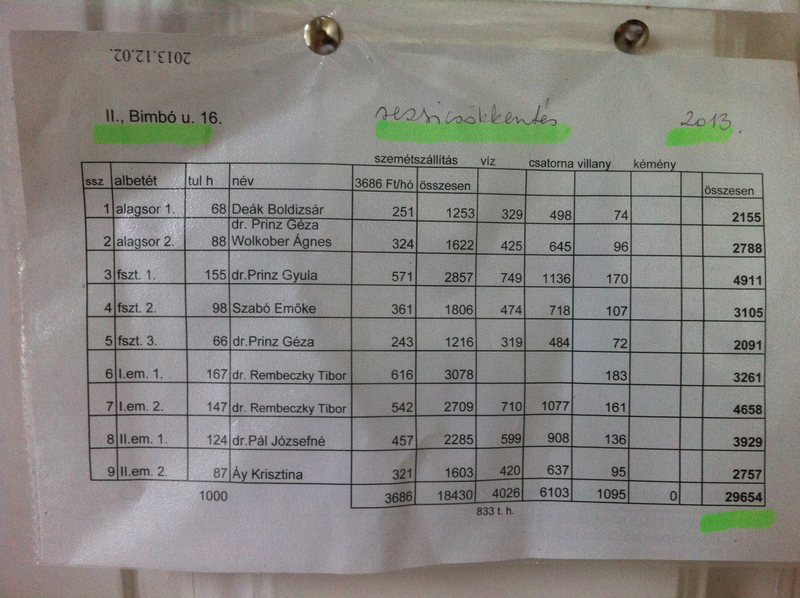 2013.12.02.
II., Bimbó u. 16. rezsicsökkentés 2013.
szemétszállítás víz csatorna villany kémény
ssz albetét tul h név 3686 Ft/hó összesen összesen
1 alagsor 1. 68 Deák Boldizsár 251 1253 329 498 74 2155
dr. Prinz Géza
2 alagsor 2. 88 Wolkober Ágnes 324 1622 425 645 96 2788
3 fszt. 1. 155 dr.Prinz Gyula 571 2857 749 1136 170 4911
4 fszt. 2. 98 Szabó Emőke 361 1806 474 718 107 3105
5 fszt. 3. 66 dr.Prinz Géza 243 1216 319 484 72 2091
6 I.em. 1. 167 dr. Rembeczky Tibor 616 3078 183 3261
7 I.em. 2. 147 dr. Rembeczky Tibor 542 2709 710 1077 161 4658
8 II.em. 1. 124 dr.Pál Józsefné 457 2285 599 908 136 3929
9 II.em. 2. 87 Áy Krisztina 321 1603 420 637 95 2757
1000 3686 18430 4026 6103 1095 0 29654
833 t. h.